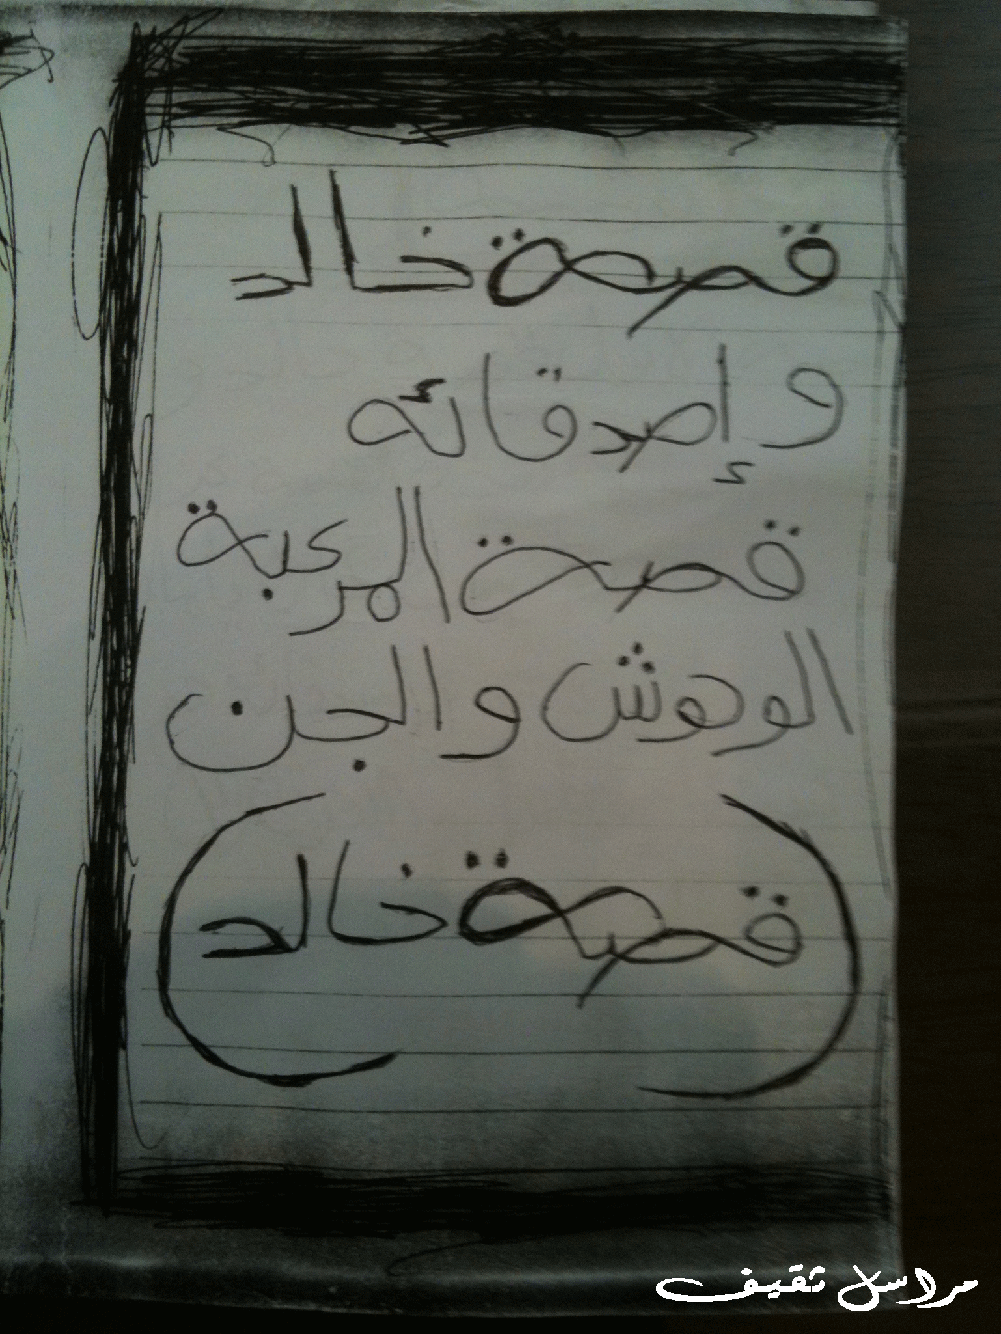 قصة خالد
و إصدقائه
قصة المرعبة
الوحوش والجن
(قصة خالد)
مراسل ثقيف